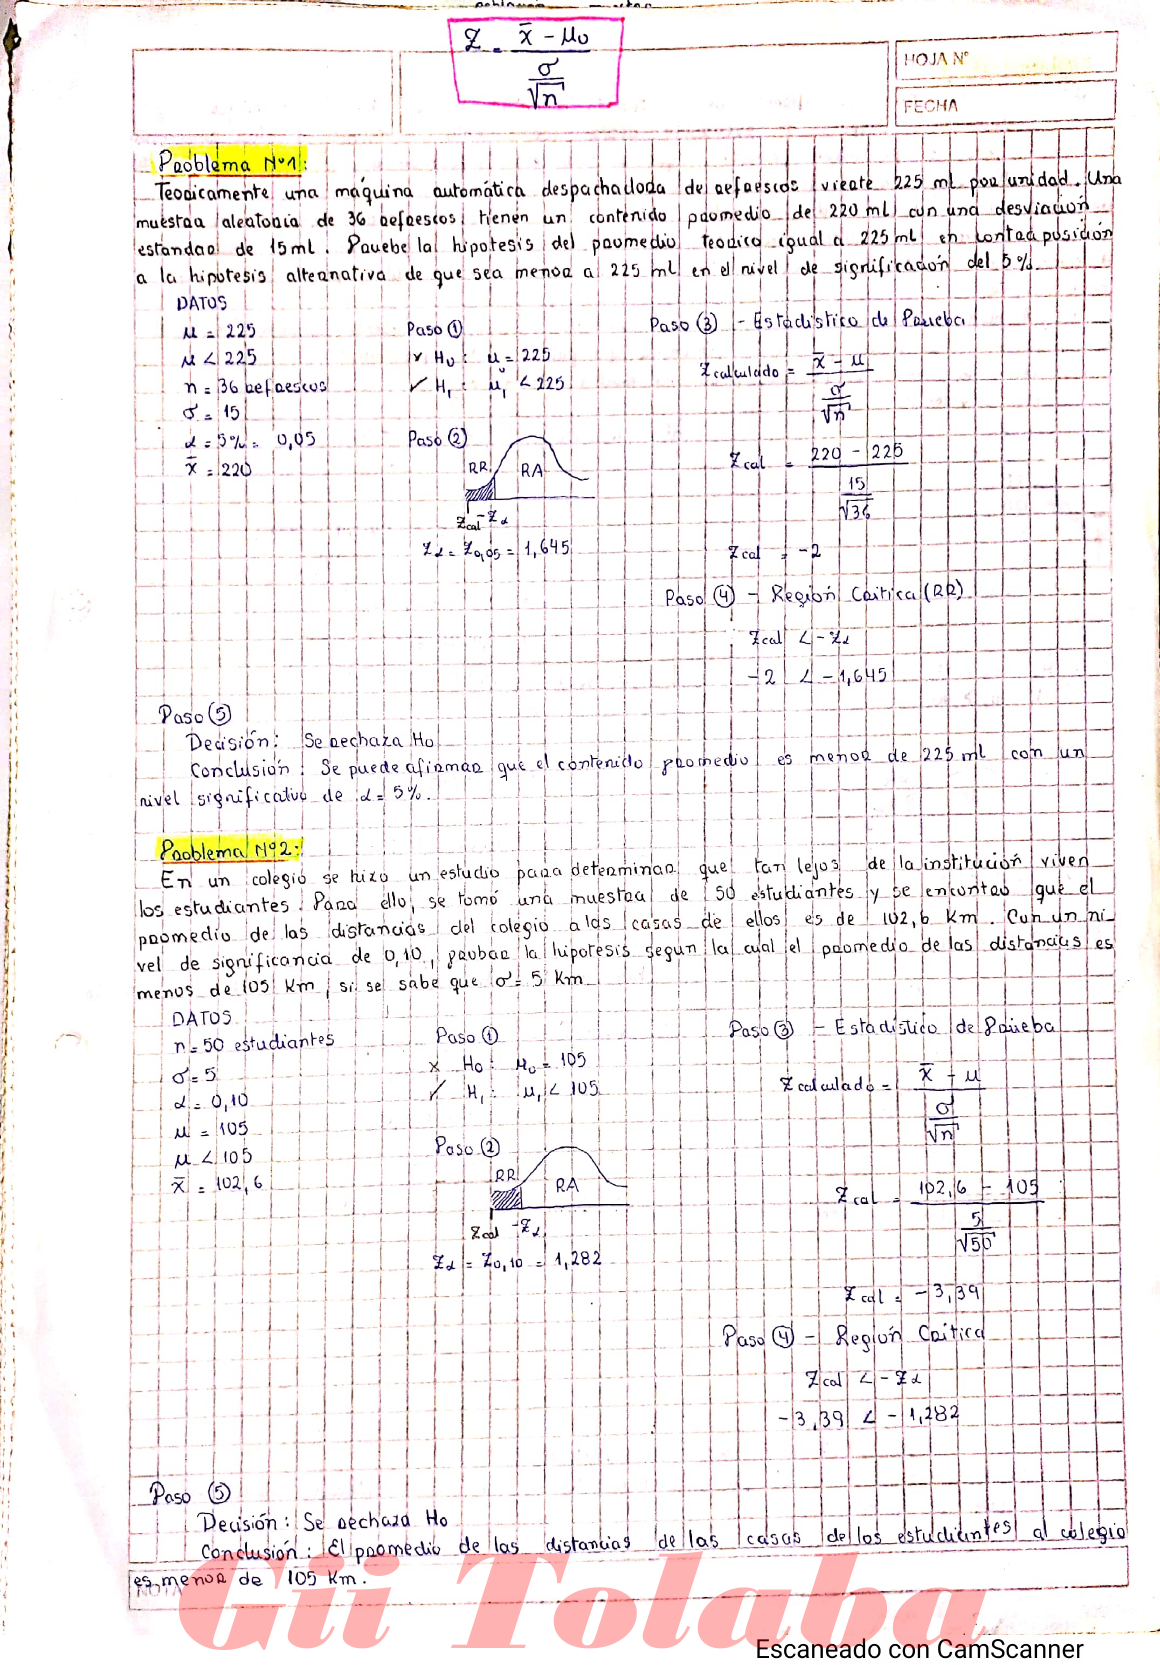 Z = x̄ - μ₀ / σ/√n
HOJA N°
FECHA
Problema N°1:
Teoricamente una máquina automática despachadora de refrescos vierte 225 ml por unidad. Una
muestra aleatoria de 36 refrescos tienen un contenido promedio de 220 ml con una desviación
estandar de 15 ml. Pruebe la hipotesis del promedio teorico igual a 225 ml en contraposición
a la hipotesis alternativa de que sea menor a 225 ml en el nivel de significación del 5%.
DATOS
μ = 225
μ < 225
n = 36 refrescos
σ = 15
α = 5% = 0,05
x̄ = 220
Paso ①
x H₀: μ₀ = 225
✓ H₁: μ₁ < 225
Paso ②
RR RA
Zcal -Zα
Zα = Z0,05 = 1,645
Paso ③ - Estadistico de Prueba
Zcalculado = x̄ - μ / σ/√n
Zcal = 220 - 225 / 15/√36
Zcal = -2
Paso ④ - Región Crítica (RR)
Zcal < -Zα
-2 < -1,645
Paso ⑤
Decisión: Se rechaza H₀
Conclusión: Se puede afirmar que el contenido promedio es menor de 225 ml con un
nivel significativo de α = 5%.
Problema N°2:
En un colegio se hizo un estudio para determinar que tan lejos de la institución viven
los estudiantes. Para ello, se tomó una muestra de 50 estudiantes y se encontro que el
promedio de las distancias del colegio a las casas de ellos es de 102,6 Km. Con un ni-
vel de significancia de 0,10, probar la hipotesis segun la cual el promedio de las distancias es
menos de 105 Km, si se sabe que σ = 5 Km
DATOS
n = 50 estudiantes
σ = 5
α = 0,10
μ = 105
μ < 105
x̄ = 102,6
Paso ①
x H₀: μ₀ = 105
✓ H₁: μ₁ < 105
Paso ②
RR RA
Zcal -Zα
Zα = Z0,10 = 1,282
Paso ③ - Estadistico de Prueba
Zcalculado = x̄ - μ / σ/√n
Zcal = 102,6 - 105 / 5/√50
Zcal = -3,39
Paso ④ - Región Crítica
Zcal < -Zα
-3,39 < -1,282
Paso ⑤
Decisión: Se rechaza H₀
Conclusión: El promedio de las distancias de las casas de los estudiantes al colegio
es menor de 105 Km.
NOTA
Gii Tolaba
Escaneado con CamScanner